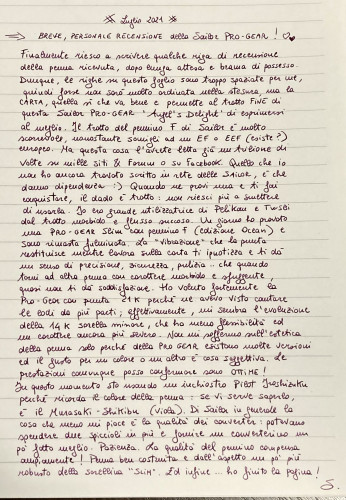 Luglio 2021
⇒ BREVE, PERSONALE RECENSIONE della Sailor PRO-GEAR!
Finalmente riesco a scrivere qualche riga di recensione
della penna ricevuta, dopo lunga attesa e brama di possesso.
Dunque, le righe su questo foglio sono troppo spaziate per me,
quindi forse non sarò molto ordinata nella stesura, ma la
CARTA, quella sì che va bene e permette al tratto FINE di
questa Sailor PRO-GEAR "Angel's Delight" di esprimersi
al meglio. Il tratto del pennino F di Sailor è molto
scorrevole, nonostante somigli ad un EF o EEF (esiste?)
europeo. Ma questa cosa l'avrete letta già un milione di
volte su mille siti & Forum o su Facebook. Quello che io
non ho ancora trovato scritto in rete delle SAILOR, è che
danno dipendenza :) Quando ne provi una e ti fai
conquistare, il dado è tratto: non riesci più a smettere
di usarla. Io ero grande utilizzatrice di Pelikan e Twsbi
dal tratto morbido e flusso succoso. Un giorno ho provato
una PRO-GEAR Slim con pennino F (edizione Ocean) e
sono rimasta fulminata. La "vibrazione" che la punta
restituisce mentre lavora sulla carta ti ipnotizza e ti dà
un senso di precisione, sicurezza, pulizia.. che quando
torni ad altra penna con carattere morbido e sfuggente,
quasi non ti dà soddisfazione. Ho voluto fortemente la
Pro-Gear con punta 21K perché ne avevo visto cantare
le lodi da più parti; effettivamente, mi sembra l'evoluzione
della 14K sorella minore, che ha meno flessibilità ed
un carattere ancora più severo. Non mi soffermo sull'estetica
della penna solo perché della PRO GEAR esistono molte versioni
ed il gusto per un colore o un altro è cosa soggettiva. Le
prestazioni comunque posso confermare sono OTTIME!
In questo momento sto usando un inchiostro Pilot Iroshizuku
perché ricorda il colore della penna: se vi serve saperlo,
è il Murasaki-Shikibu (viola). Di Sailor in generale la
cosa che meno mi piace è la qualità dei converter: potevano
spendere due spiccioli in più e fornire un convertitore un
po' fatto meglio. Pazienza. La qualità del pennino compensa
ampiamente! Penna ben costruita e dall'aspetto un po' più
robusto della sorellina "Slim". Ed infine... ho finito la pagina!
S.